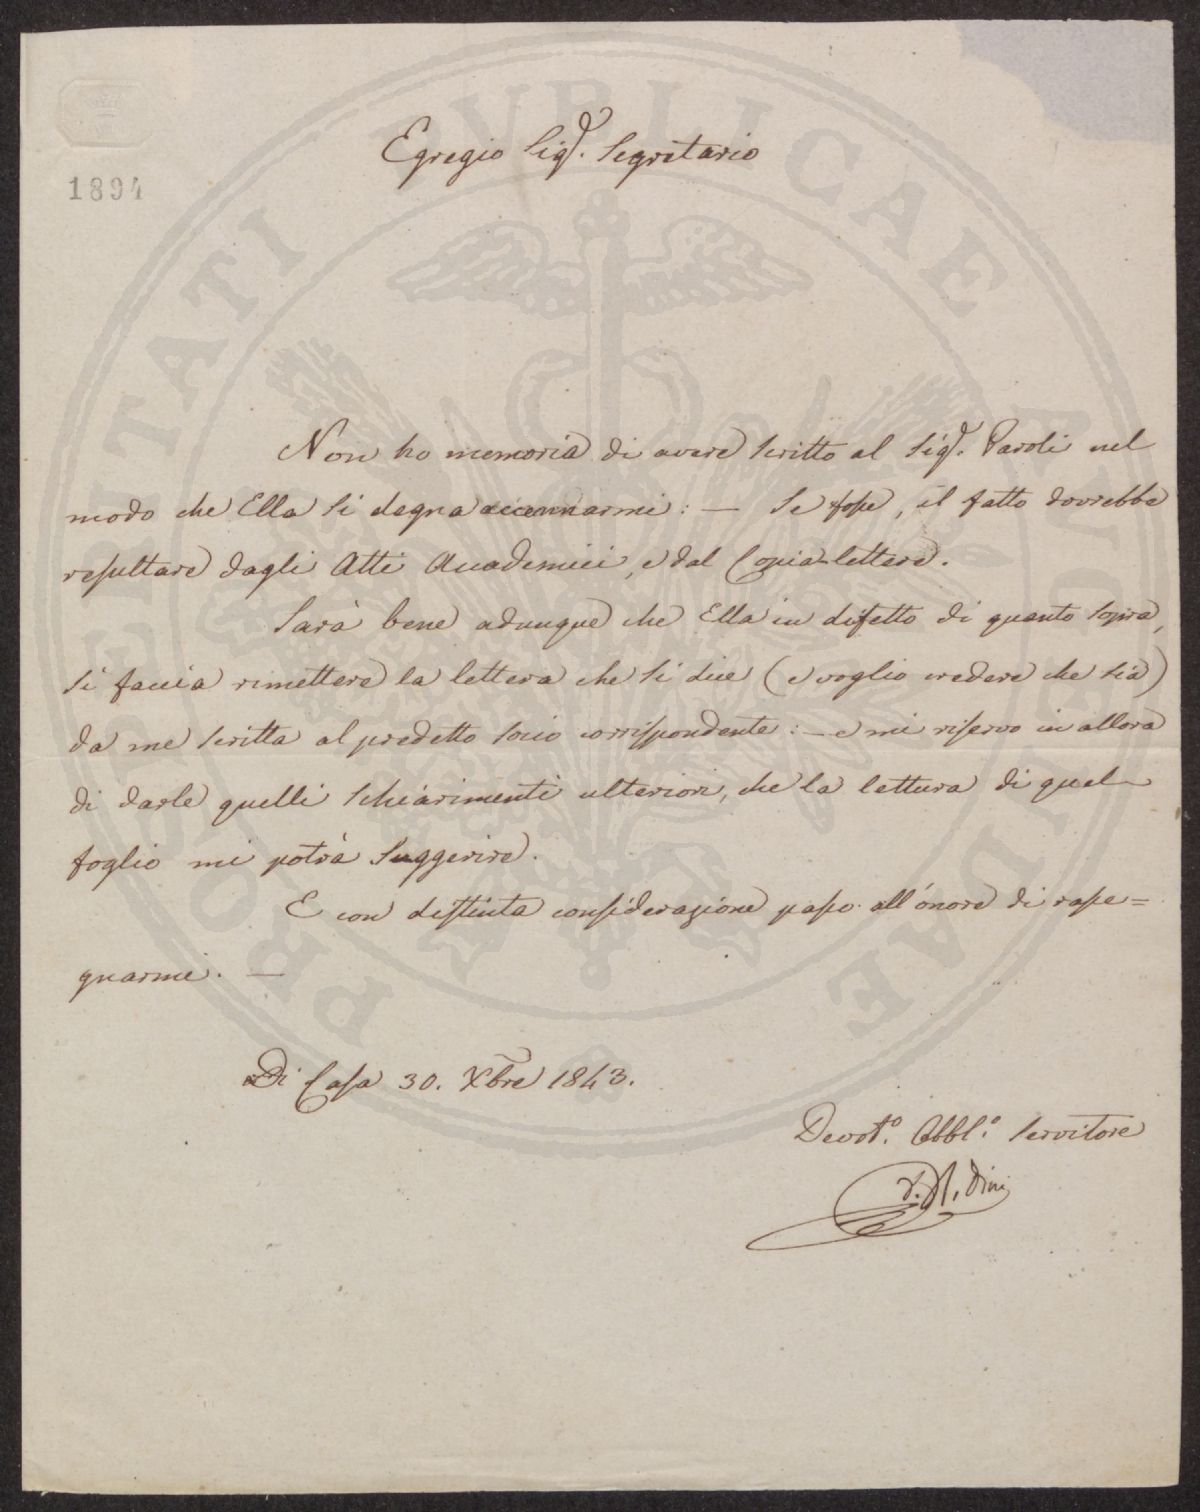 1894
Egregio Sigr. Segretario
Non ho memoria di avere scritto al Sigr. Paroli nel
modo che Ella si degna accennarmi: — Se fosse, il fatto dovrebbe
resultare dagli Atti Accademici, e dal Copia-lettere.
Sarà bene adunque che Ella in difetto di quanto sopra,
si faccia rimettere la lettera che si dice (e voglio credere che sia)
da me scritta al predetto socio corrispondente: — e mi riservo in allora
di darle quelli schiarimenti ulteriori, che la lettura di quel
foglio mi potrà suggerire.
E con distinta considerazione passo all'onore di rasse=
gnarmi. —
Di Casa 30. Xbre 1843.
Devot.o Obbl.o Servitore
Dini
PROSPERITATI PVBLICAE AVGENDAE